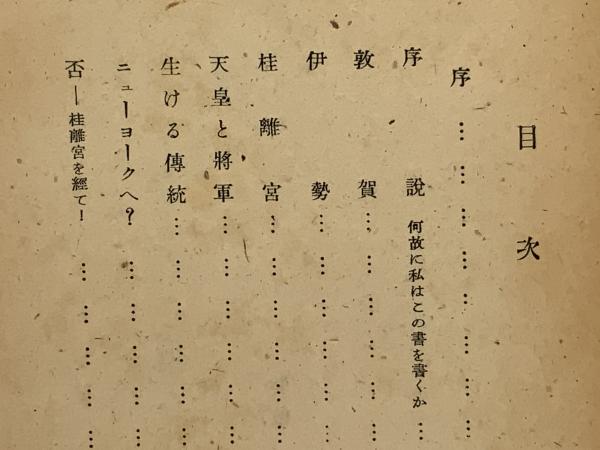 目次
序………………
序說 何故に私はこの書を書くか…
敦賀……………
伊勢……………
桂離宮……………
天皇と將軍……………
生ける傳統……………
ニューヨークへ？……………
否―桂離宮を經て！……………